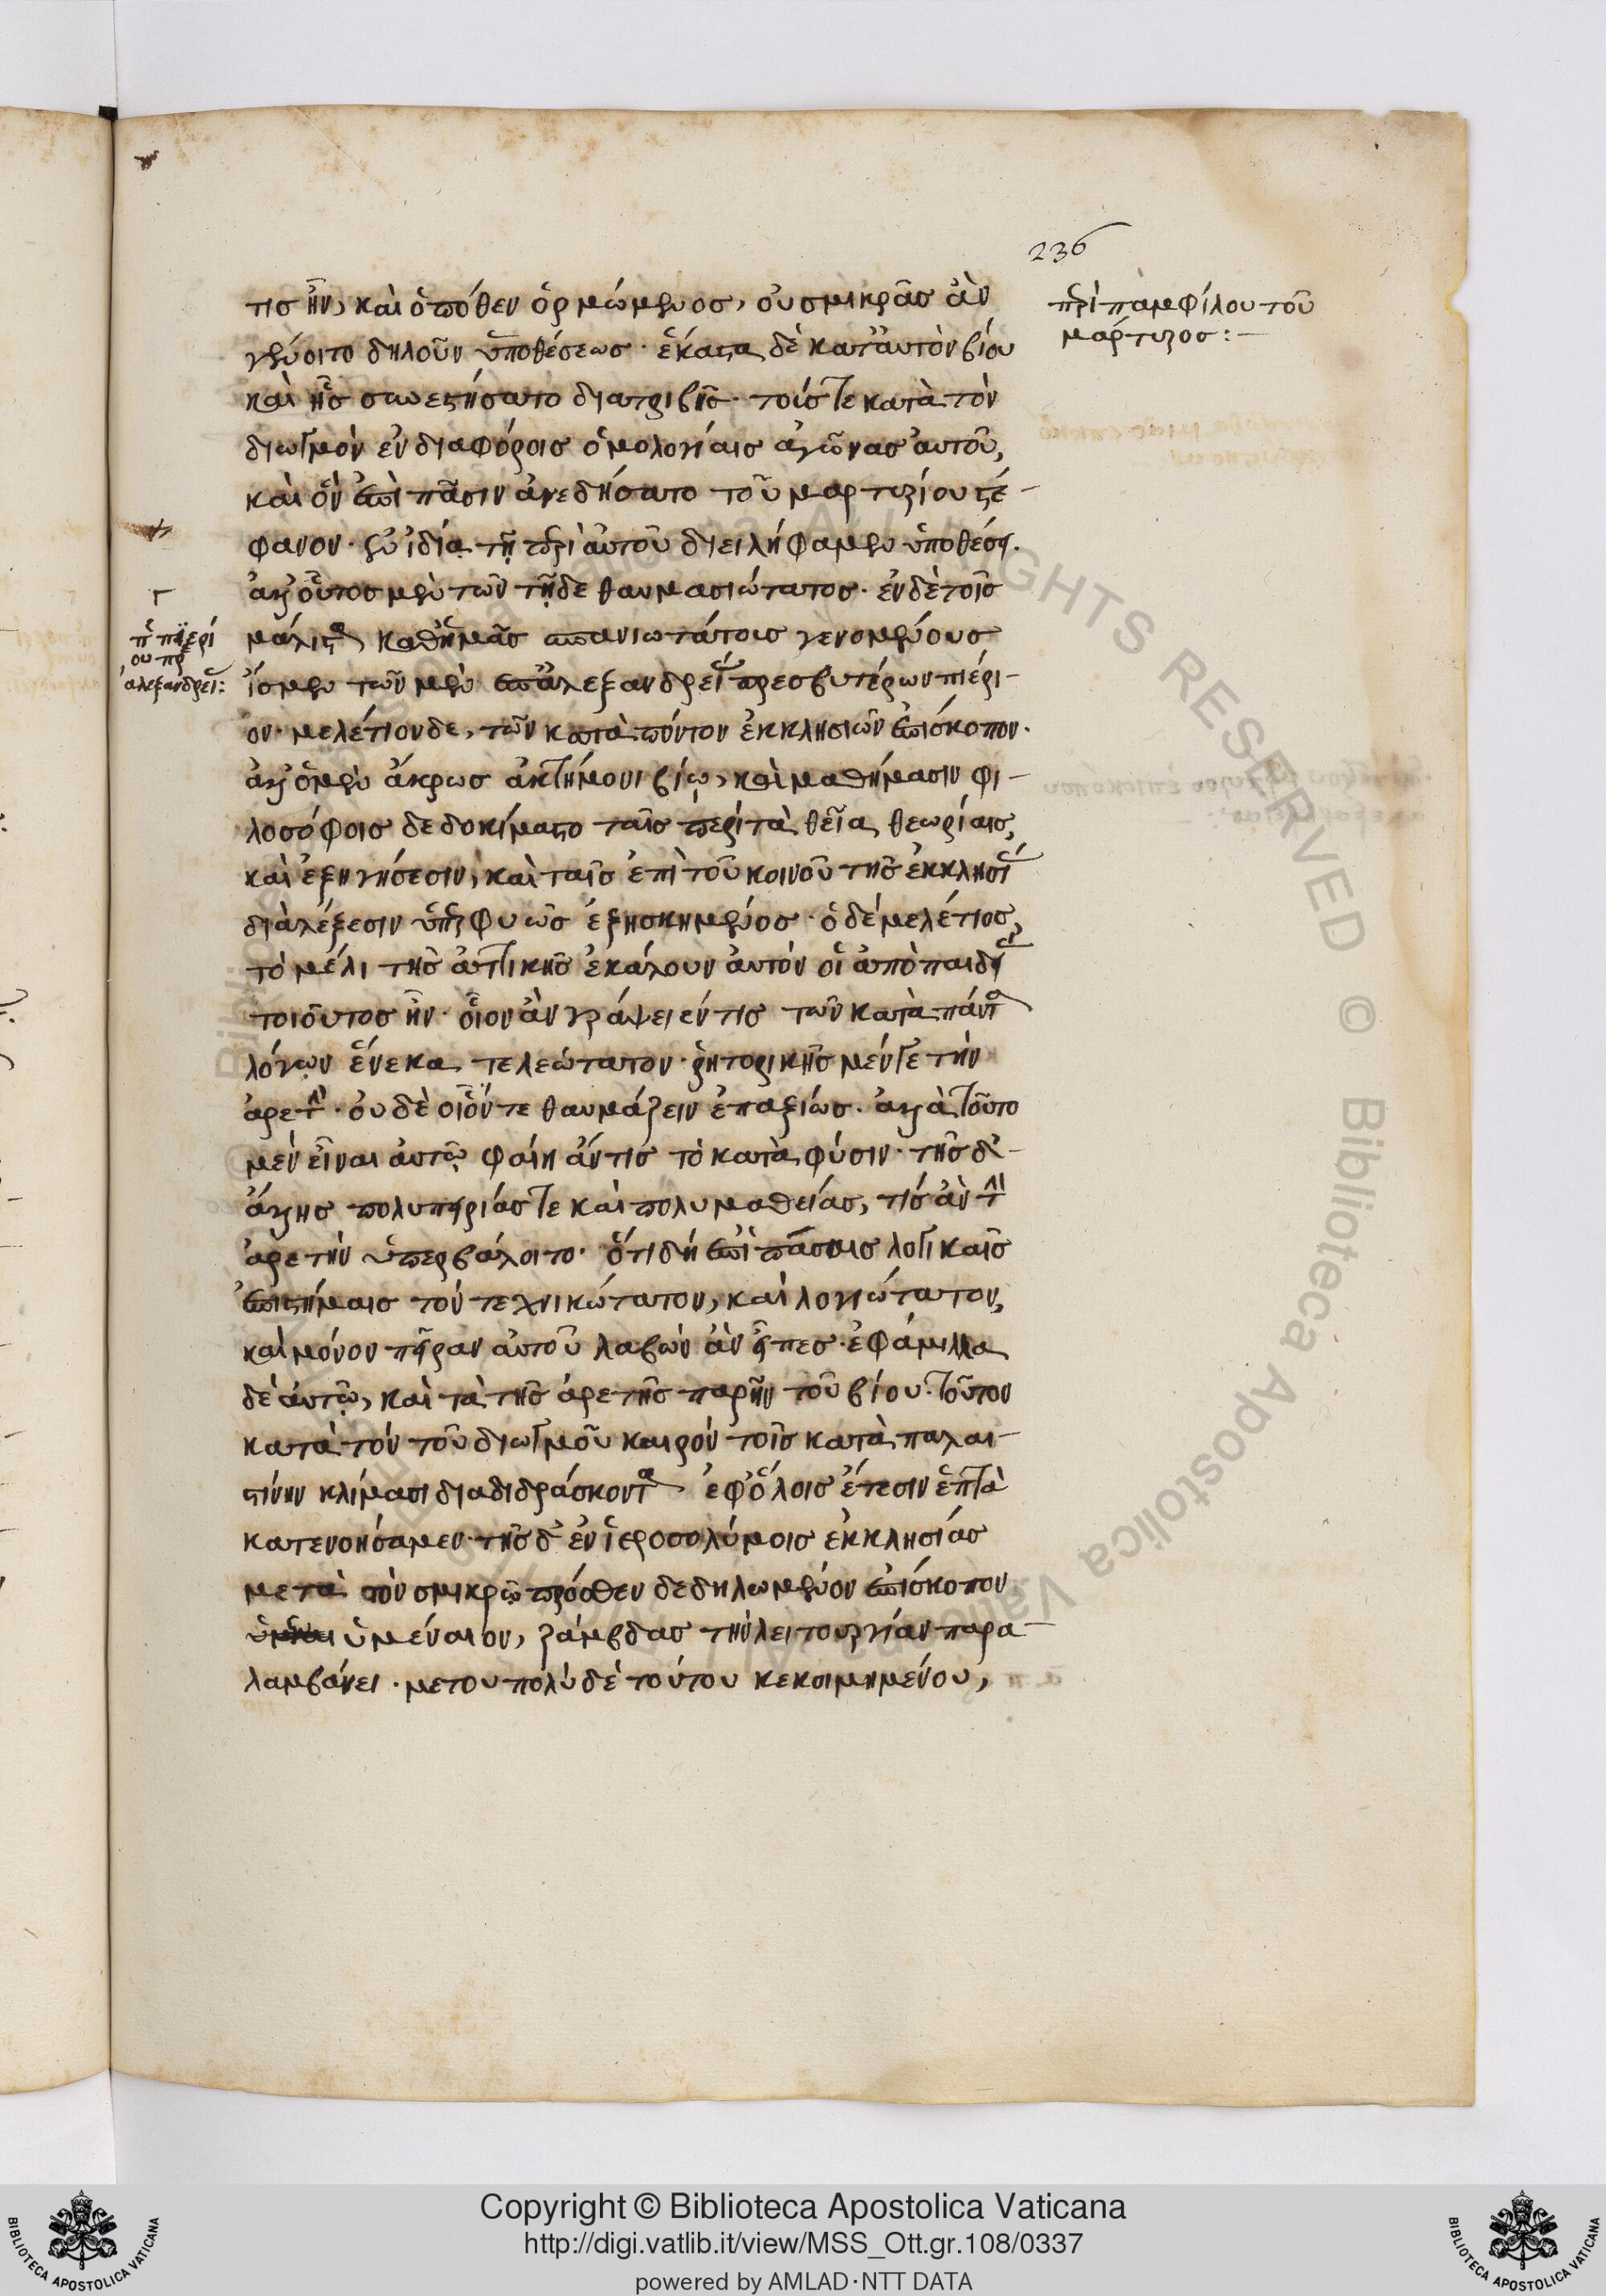 236
τις ἦν, καὶ ὁπόθεν ὁρμώμενος, οὐ σμικρᾶς ἂν
γένοιτο δηλοῦν ὑποθέσεως· ἕκαστα δὲ κατ' αὐτὸν βίου
καὶ ἧς συνεστήσατο διατριβῆς· τούς τε κατὰ τὸν
διωγμὸν ἐν διαφόροις ὁμολογίαις ἀγῶνας αὐτοῦ,
καὶ ὃν ἐπὶ πᾶσιν ἀνεδήσατο τοῦ μαρτυρίου στέ-
φανον· ἐν ἰδίᾳ τῇ περὶ αὐτοῦ διειλήφαμεν ὑποθέσει.
ἀλλ' οὗτος μὲν τῶν τῇδε θαυμασιώτατος· ἐν δὲ τοῖς
μάλιστα καθ' ἡμᾶς σπανιωτάτοις γενομένους
ἴσμεν τῶν μὲν ἐπ' ἀλεξανδρείας πρεσβυτέρων πιέρι-
ον· μελέτιον δε, τῶν κατὰ πόντον ἐκκλησιῶν ἐπίσκοπον·
ἀλλ' ὁ μὲν ἄκρως ἀκτήμονι βίῳ, καὶ μαθήμασιν φι-
λοσόφοις δεδοκίμαστο ταῖς περὶ τὰ θεῖα θεωρίαις,
καὶ ἐξηγήσεσιν, καὶ ταῖς ἐπὶ τοῦ κοινοῦ τῆς ἐκκλησίας
διαλέξεσιν ὑπερφυῶς ἐξησκημένος· ὁ δὲ μελέτιος,
τὸ μέλι τῆς ἀττικῆς ἐκάλουν αὐτὸν οἱ ἀπὸ παιδείας
τοιοῦτος ἦν· οἷον ἂν γράψειέν τις τῶν κατὰ πάντα
λόγων ἕνεκα τελεώτατον· ῥητορικῆς μέν γε τὴν
ἀρετὴν· οὐδὲ οἷόν τε θαυμάζειν ἐπαξίως· ἀλλὰ τοῦτο
μὲν εἶναι αὐτῷ φαίη ἄν τις τὸ κατὰ φύσιν· τῆς δ'
ἄλλης πολυπειρίας τε καὶ πολυμαθείας, τίς ἂν τὴν
ἀρετὴν ὑπερβάλοιτο· ὅτι δὴ ἐπὶ πάσαις λογικαῖς
ἐπιστήμαις τὸν τεχνικώτατον, καὶ λογιώτατον,
καὶ μόνον πεῖραν αὐτοῦ λαβὼν ἂν εἶπες· ἐφάμιλλα
δὲ αὐτῷ, καὶ τὰ τῆς ἀρετῆς παρῆν τοῦ βίου· τοῦτον
κατὰ τὸν τοῦ διωγμοῦ καιρὸν τοῖς κατὰ παλαι-
στίνην κλίμασι διαδιδράσκοντα ἐφ' ὅλοις ἔτεσιν ἑπτὰ
κατενοήσαμεν· τῆς δ' ἐν ἱεροσολύμοις ἐκκλησίας
μετὰ τὸν σμικρῷ πρόσθεν δεδηλωμένον ἐπίσκοπον
ὑμέναιον, ζάμβδας τὴν λειτουργίαν παρα-
λαμβάνει· μετ' οὐ πολὺ δὲ τούτου κεκοιμημένου,
περὶ παμφίλου τοῦ
μάρτυρος:—
περὶ πιερί
ου πρ
ἀλεξανδρεί:
Copyright © Biblioteca Apostolica Vaticana
http://digi.vatlib.it/view/MSS_Ott.gr.108/0337
powered by AMLAD·NTT DATA
BIBLIOTECA APOSTOLICA VATICANA
BIBLIOTECA APOSTOLICA VATICANA